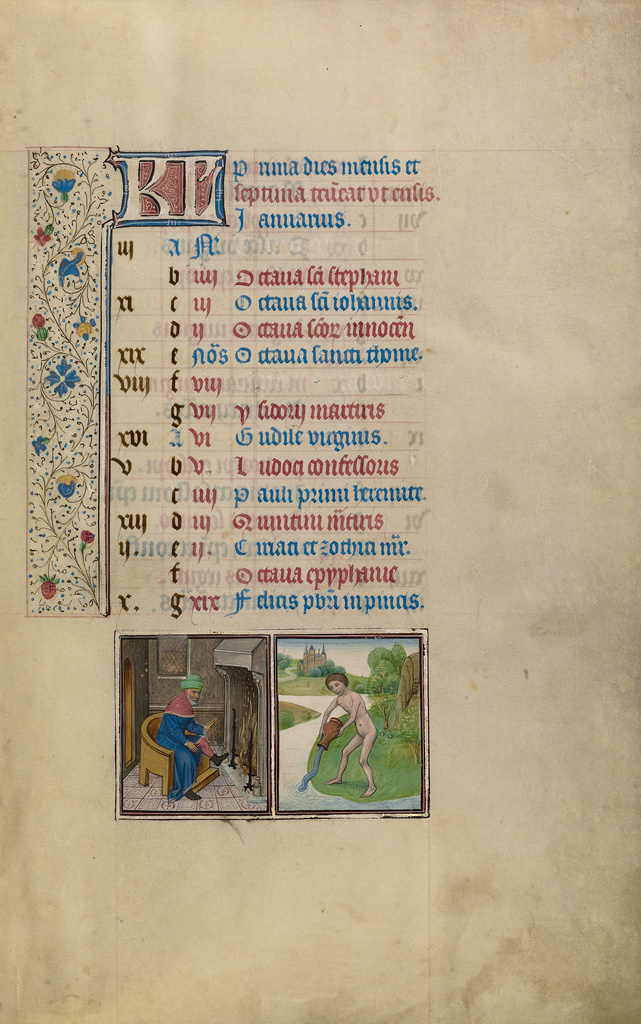 KL Prima dies mensis et
septima truncat ut ensis.
Januarius.
iii A
b iiii Octava sci stephani
xi c iii Octava sci iohannis.
d ii Octava scor innocen
xix e Nōs Octava sancti thome.
viii f viii
g vii ysidorii martiris
xvi A vi Gudile virginis.
v b v. Iudoci confessoris
c iiii Pauli primi heremite.
xiii d iii Quintini mtiris
ii. e ii. Ciriaci et zothici mr.
f Octava epyphanie
x. g xix Felicis pbri in pincis.